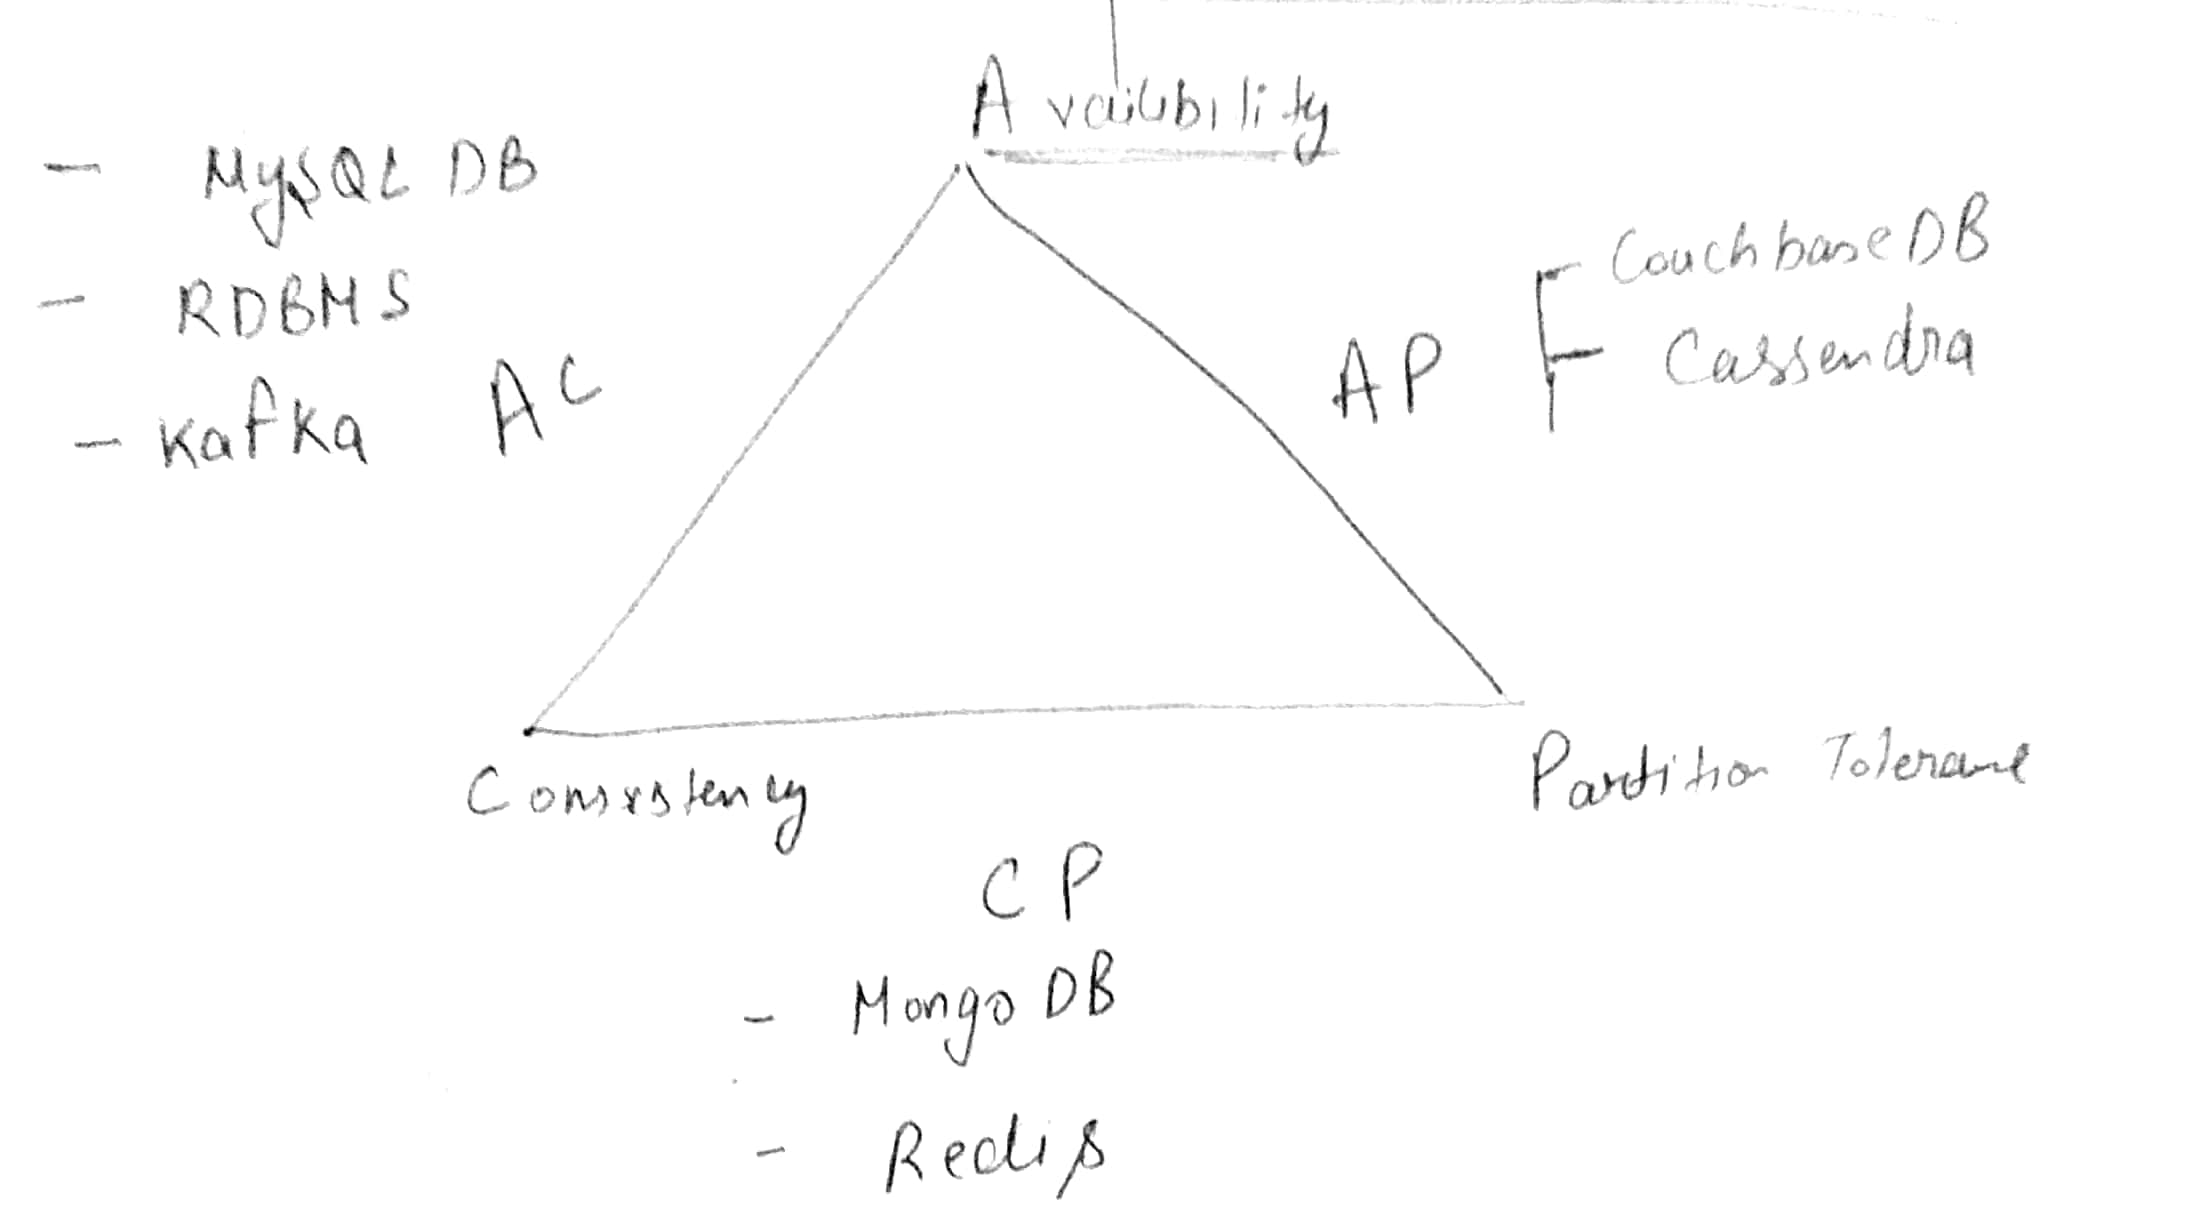 Availibility
- MySQL DB
- RDBMS
- Kafka
AC
AP
Couchbase DB
Cassendra
Consistency
Partition Tolerance
CP
- Mongo DB
- Redis